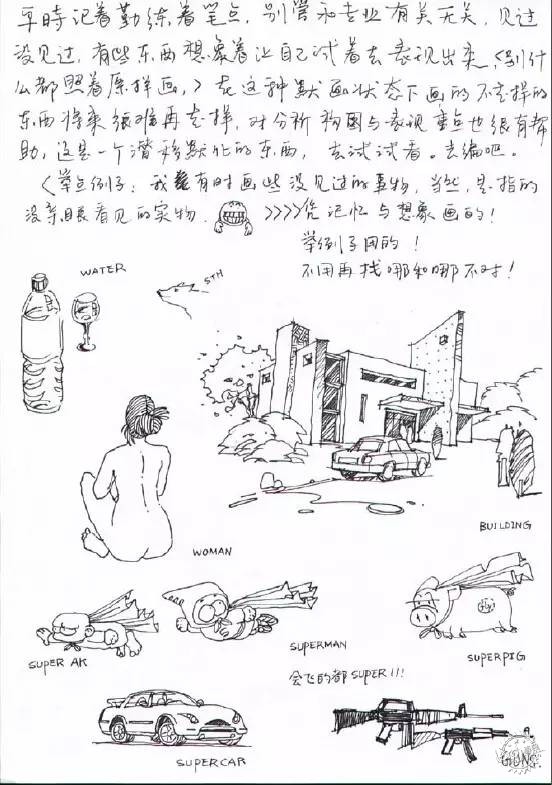 平時记着勤练着笔点,别管和专业有关无关,见过
没见过,有些东西想象着让自己试着去表现出来(别什
么都照着原样画,)在这种默画状态下画的不走样的
东西将来很难再走样,对分析构图与表现重点也很有帮
助,这是一个潜移默化的东西,去试试看。去编吧。
〈举点例子:我有时画些没见过的事物,当然,是指的
没亲眼看见的实物. >>>>凭记忆与想象画的!
举例子用的!
不用再找哪和哪不对!
WATER
STH
BUILDING
WOMAN
SUPER AK
SUPERMAN
SUPERPIG
会飞的都SUPER!!!
SUPERCAR
GUNS